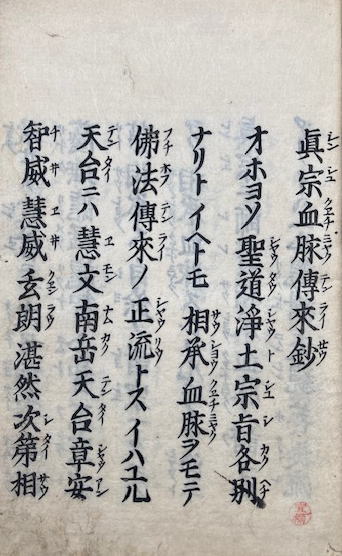 眞宗血脉傳來鈔
オホヨソ聖道淨土宗旨各別
ナリトイヘトモ相承血脉ヲモテ
佛法傳來ノ正流トスイハユル
天台ニハ慧文南岳天台章安
智威慧威玄朗湛然次第相